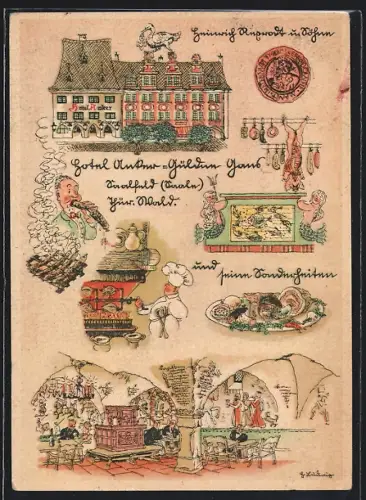 Heinrich Reprodt u. Söhne
Hotel Anker
Hotel Anker - Güldne Gans
Saalfeld (Saale)
Thür. Wald.
und
seine Sonderheiten